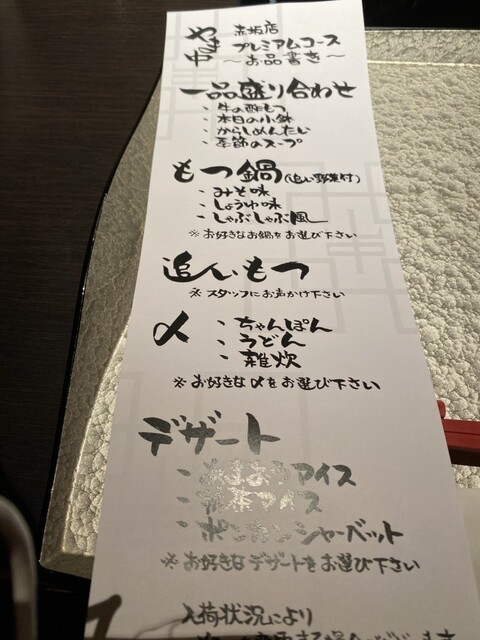 やま中 赤坂店
プレミアムコース
～お品書き～
一品盛り合わせ
・牛の酢もつ
・本日の小鉢
・からしめんたい
・季節のスープ
もつ鍋(追い野菜付)
・みそ味
・しょうゆ味
・しゃぶしゃぶ風
※お好きなお鍋をお選び下さい
追いもつ
※スタッフにお声かけ下さい
〆 ・ちゃんぽん
・うどん
・雑炊
※お好きな〆をお選び下さい
デザート
・あまおうアイス
・抹茶アイス
・ポンカンシャーベット
※お好きなデザートをお選び下さい
入荷状況により